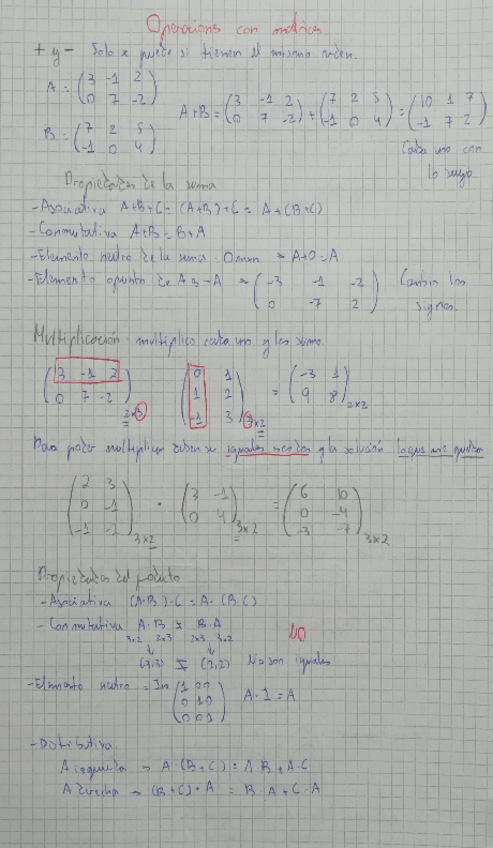 Operaciones con matrices
+ y - Solo se puede si tienen el mismo orden.
A = (3 -1 2
0 7 -2)
B = (7 2 5
-1 0 4)
A+B = (3 -1 2
0 7 -2) + (7 2 5
-1 0 4) = (10 1 7
-1 7 2)
Cada uno con
lo suyo
Propiedades de la suma
- Asociativa A+B+C = (A+B)+C = A+(B+C)
- Conmutativa A+B = B+A
- Elemento neutro de la suma: Omxn → A+0=A
- Elemento opuesto de A es -A → (-3 -1 -2
0 -7 2) Cambio los
signos.
Multiplicación: multiplico cada uno y les sumo.
(3 -1 2
0 7 -2) 2x3 (0 1
1 2
-1 3) 3x2 = (-3 1
9 8) 2x2
Para poder multiplicar deben ser iguales y la solución
(2 3
0 -1
-1 -2) 3x2 · (3 -1
0 4) 3x2 = (6 10
0 -4
-3 -7) 3x2
Propiedades del producto
- Asociativa (A·B)·C = A·(B·C)
- Conmutativa A·B ≠ B·A NO
3x2 2x3 2x3 3x2
↓ ↓
(3,3) ≠ (2,2) No son iguales
- Elemento neutro = In (1 0 0
0 1 0
0 0 1) A·1 = A
- Distributiva
A izquierda → A·(B+C) = A·B + A·C
A derecha → (B+C)·A = B·A + C·A